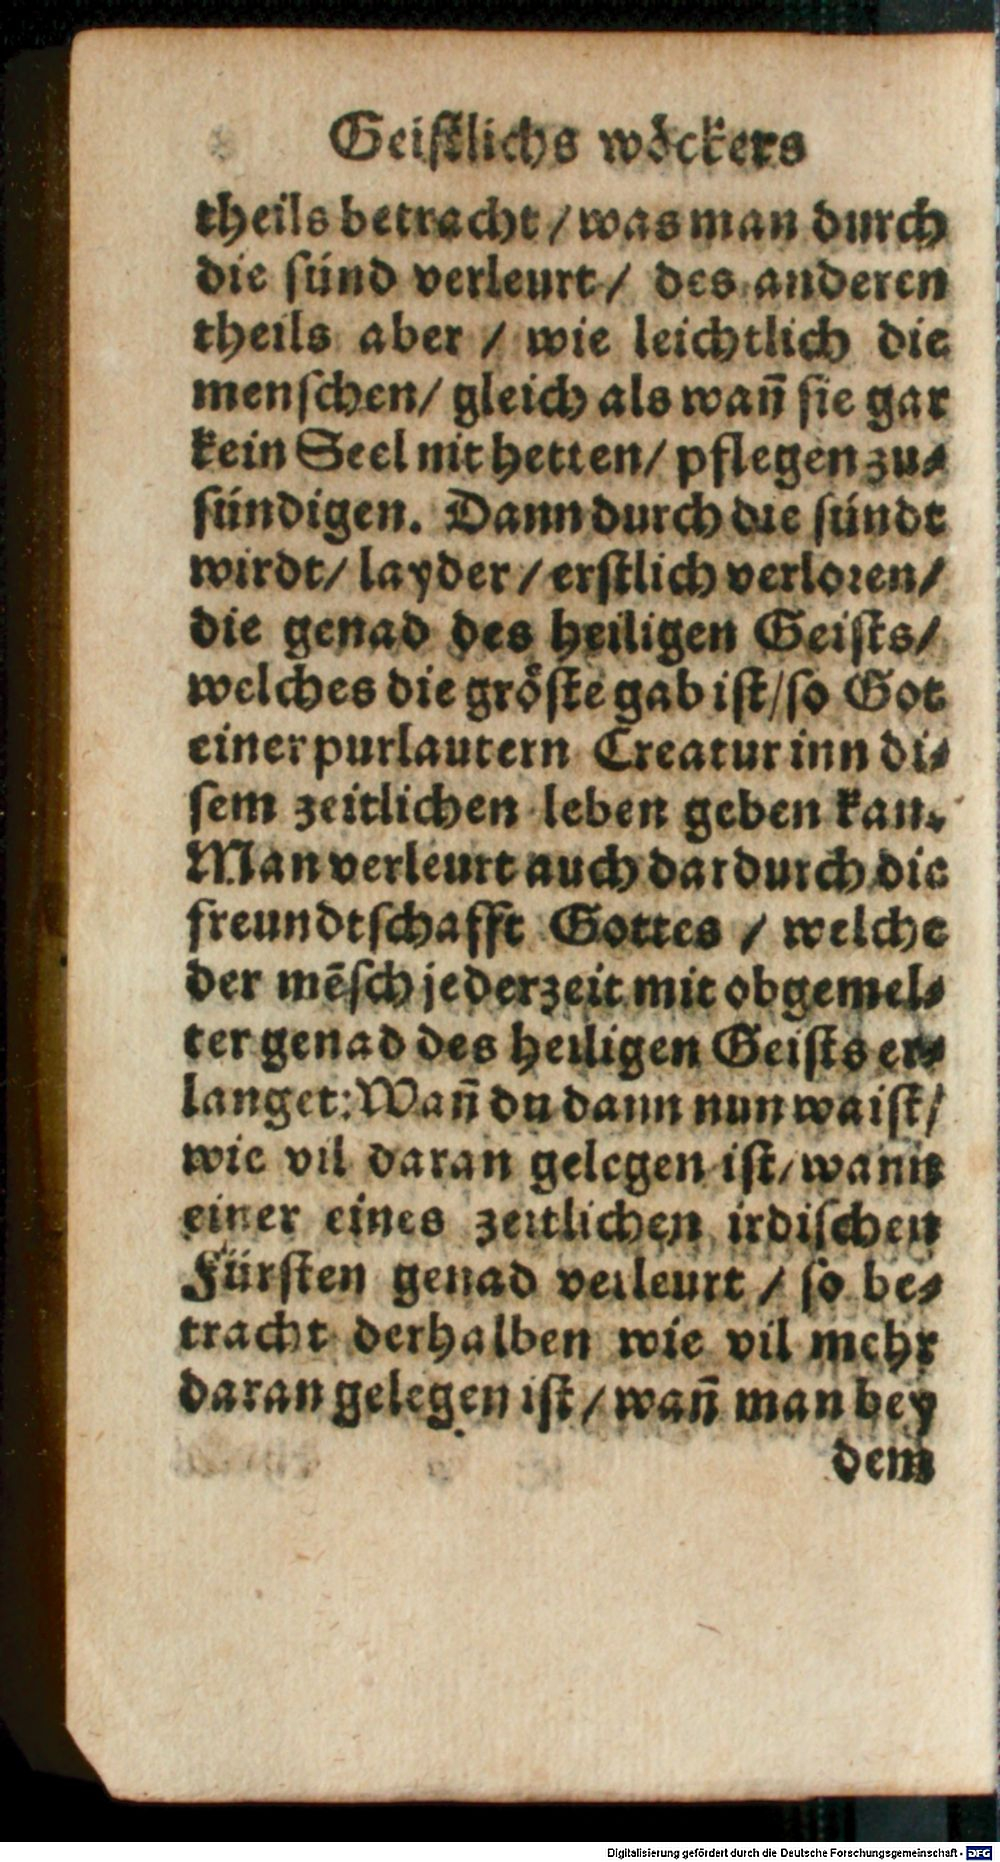 Geiſtlichs wöckers
theils betracht / was man durch
die ſünd verleurt / des anderen
theils aber / wie leichtlich die
menſchen / gleich als wañ ſie gar
kein Seel nit hetten / pflegen zu⸗
ſündigen. Dann durch die ſündt
wirdt / layder / erſtlich verloꝛen /
die genad des heiligen Geiſts /
welches die gröſte gab iſt / ſo Got
einer purlautern Creatur inn di⸗
ſem zeitlichen leben geben kan.
Man verleurt auch dardurch die
freundtſchafft Gottes / welche
der mēſch jederzeit mit obgemel⸗
ter genad des heiligen Geiſts er⸗
langet: Wañ du dann nun waiſt /
wie vil daran gelegen iſt / wann
einer eines zeitlichen irdiſchen
Fürſten genad verleurt / ſo be⸗
tracht derhalben wie vil mehr
daran gelegen iſt / wañ man bey
dem
Digitalisierung gefördert durch die Deutsche Forschungsgemeinschaft - DFG